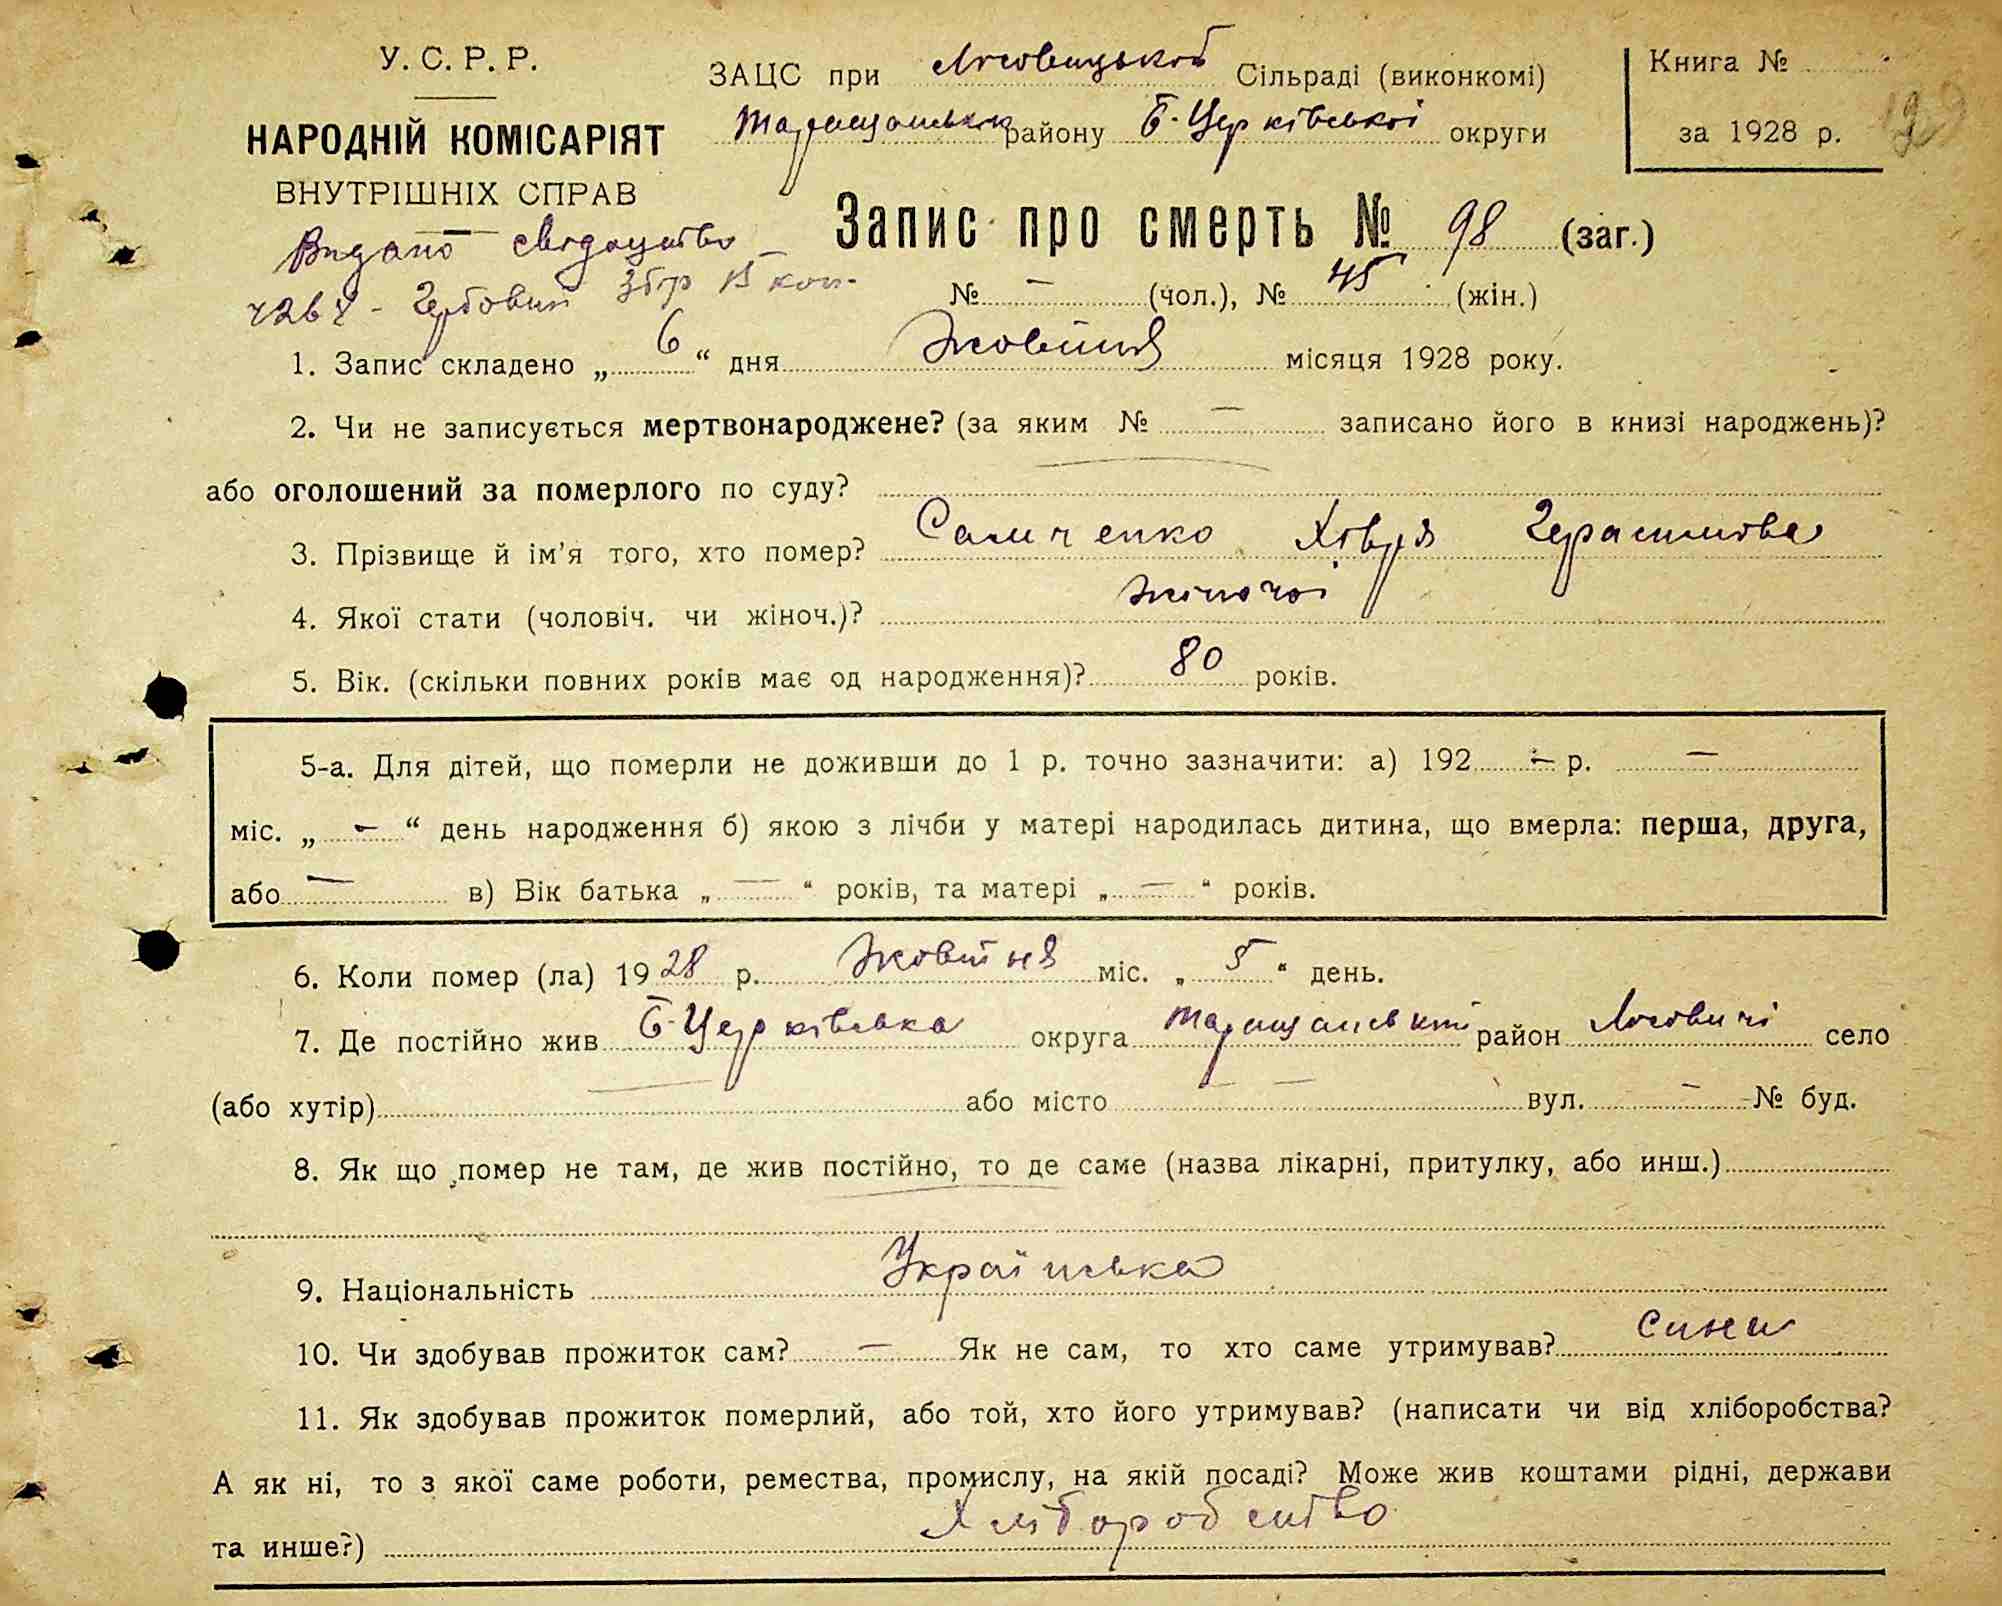 У. С. Р. Р.
НАРОДНІЙ КОМІСАРІЯТ
ВНУТРІШНІХ СПРАВ
Видано свідоцтво
Гербовий збір 15 коп.
ЗАЦС при Лісовицькой Сільраді (виконкомі)
Таращанськ району Б-Церківської округи
Книга №
за 1928 р.
Запис про смерть № 98 (заг.)
№ — (чол.), № 45 (жін.)
1. Запис складено „ 6 “ дня Жовтня місяця 1928 року.
2. Чи не записується мертвонароджене? (за яким № — записано його в книзі народжень)?
або оголошений за померлого по суду? —
3. Прізвище й ім’я того, хто помер? Самченко Хівря Герасимова
4. Якої стати (чоловіч. чи жіноч.)? жіночої
5. Вік. (скільки повних років має од народження)? 80 років.
5-а. Для дітей, що померли не доживши до 1 р. точно зазначити: а) 192 — р. —
міс. „ — “ день народження б) якою з лічби у матері народилась дитина, що вмерла: перша, друга,
або — в) Вік батька „ — “ років, та матері „ — “ років.
6. Коли помер (ла) 1928 р. Жовтня міс. „ 5 “ день.
7. Де постійно жив Б-Церківська округа Таращанський район Лісовичі село
(або хутір) — або місто — вул. — № буд.
8. Як що помер не там, де жив постійно, то де саме (назва лікарні, притулку, або инш.)
9. Національність Українська
10. Чи здобував прожиток сам? — Як не сам, то хто саме утримував? сини
11. Як здобував прожиток померлий, або той, хто його утримував? (написати чи від хліборобства?
А як ні, то з якої саме роботи, ремества, промислу, на якій посаді? Може жив коштами рідні, держави
та инше?) Хліборобство